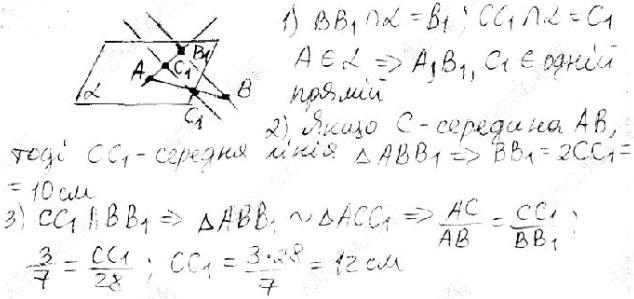 A
B₁
C₁
B
C₁
α
1) BB₁ ∩ α = B₁; CC₁ ∩ α = C₁
A ∈ α => A, B₁, C₁ ∈ одній
прямій
2) Якщо C - середина AB,
тоді CC₁ - середня лінія △ABB₁ => BB₁ = 2CC₁ =
= 10 см
3) CC₁ ∧ BB₁ => △ABB₁ ~ △ACC₁ => AC/AB = CC₁/BB₁;
3/7 = CC₁/28; CC₁ = 3·28/7 = 12 см